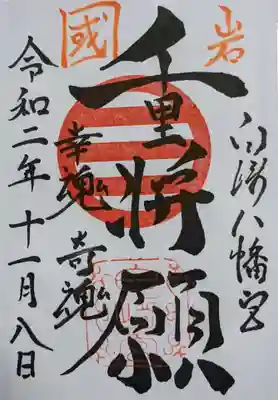 岩國
白崎八幡宮
千里将願
幸魂 奇魂
令和二年十一月八日